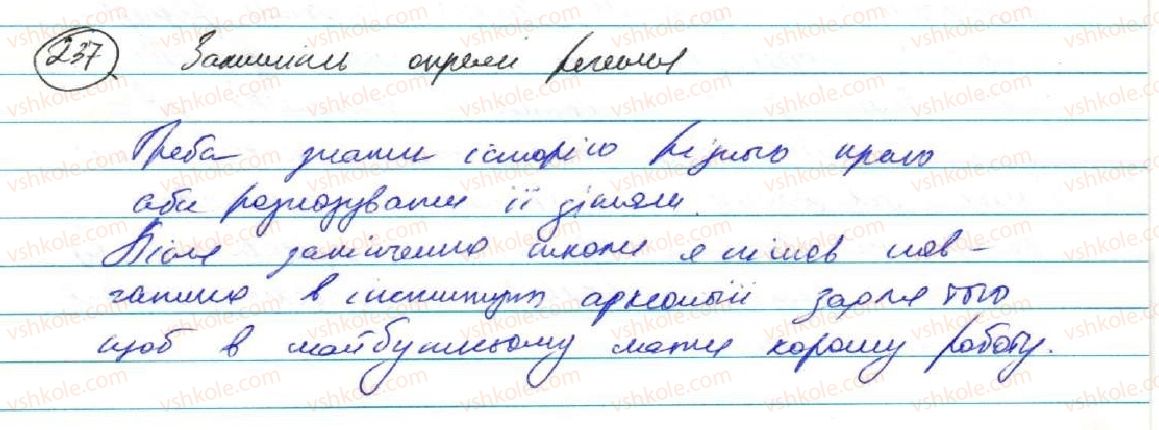 237 Залишіть окремі речення
Треба знати історію рідного краю
аби розказувати її дітям.
Після закінчення школи я пішов нав-
чатися в інститут археології заради того
щоб в майбутньому мати хорошу роботу.